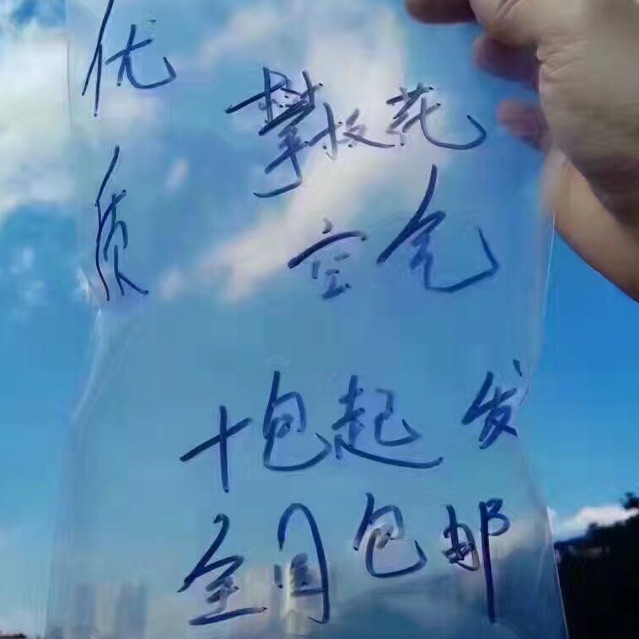 优质
攀枝花
空气
十包起发
全国包邮